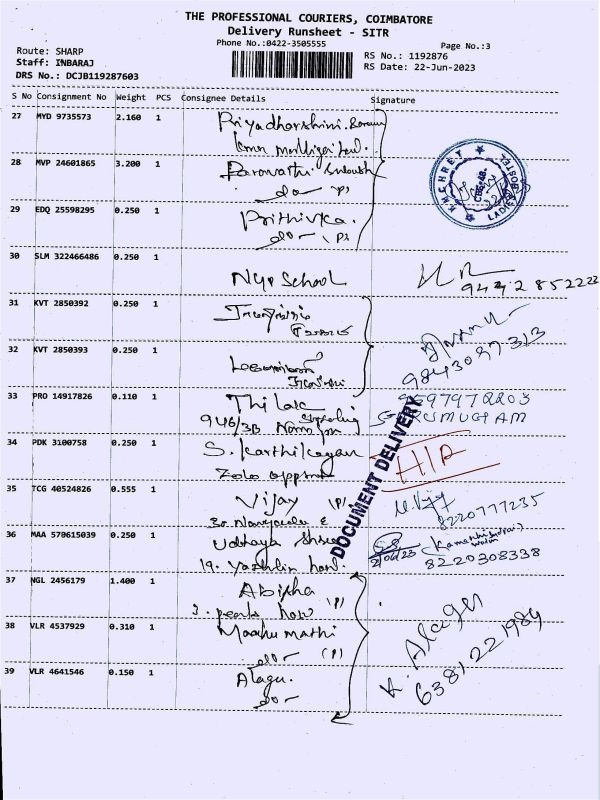 THE PROFESSIONAL COURIERS, COIMBATORE
Delivery Runsheet - SITR
Phone No.:0422-3505555
Page No.:3
Route: SHARP
Staff: INBARAJ
DRS No.: DCJB119287603
RS No.: 1192876
RS Date: 22-Jun-2023
S No Consignment No Weight PCS Consignee Details Signature
27 MYD 9735573 2.160 1 Priyadharshini.
28 MVP 24601865 3.200 1
do - (P)
29 EDQ 25598295 0.250 1 Prithivka.
do -
KMCHREY LADIES HOSTEL
30 SLM 322466486 0.250 1
NGP School
9442852222
31 KVT 2850392 0.250 1
32 KVT 2850393 0.250 1
9843097313
33 PRO 14917826 0.110 1 Thilak
946/3B
9597972203
ARUMUGAM
34 PDK 3100758 0.250 1 S. Karthikayan
Zolo
H/R
DOCUMENT DELIVERY
35 TCG 40524826 0.555 1 Vijay (P)
8220777235
36 MAA 570615039 0.250 1 Udhaya
19.
8220308338
37 NGL 2456179 1.400 1 Abisha
3. pearls (P)
38 VLR 4537929 0.310 1 Madhumathi
do - (P)
39 VLR 4641546 0.150 1 Alagu.
do -
K. Alagu
6381221984